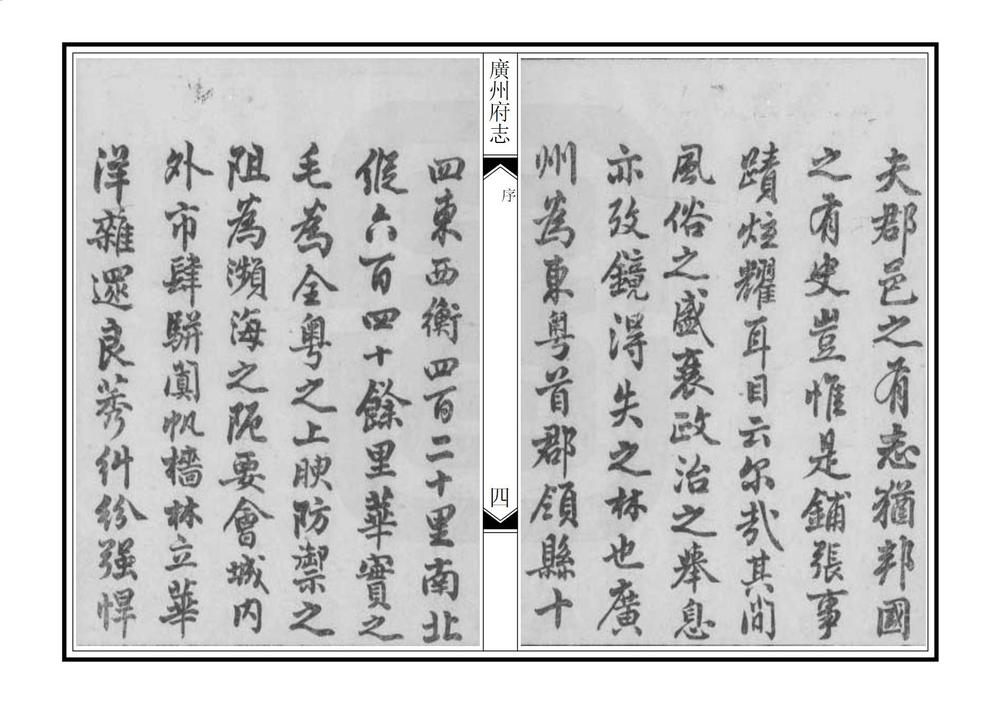 夫郡邑之有志猶邦國
之有史豈惟是鋪張事
蹟炫耀耳目云尔哉其间
風俗之盛衰政治之舉息
亦攷鏡得失之林也廣
州為東粤首郡領縣十
廣州府志
序
四
四東西衡四百二十里南北
縱六百四十餘里華實之
毛為全粤之上腴防禦之
阻為瀕海之阨要會城内
外市肆駢闐帆檣林立華
洋雜遝良莠糾紛强悍